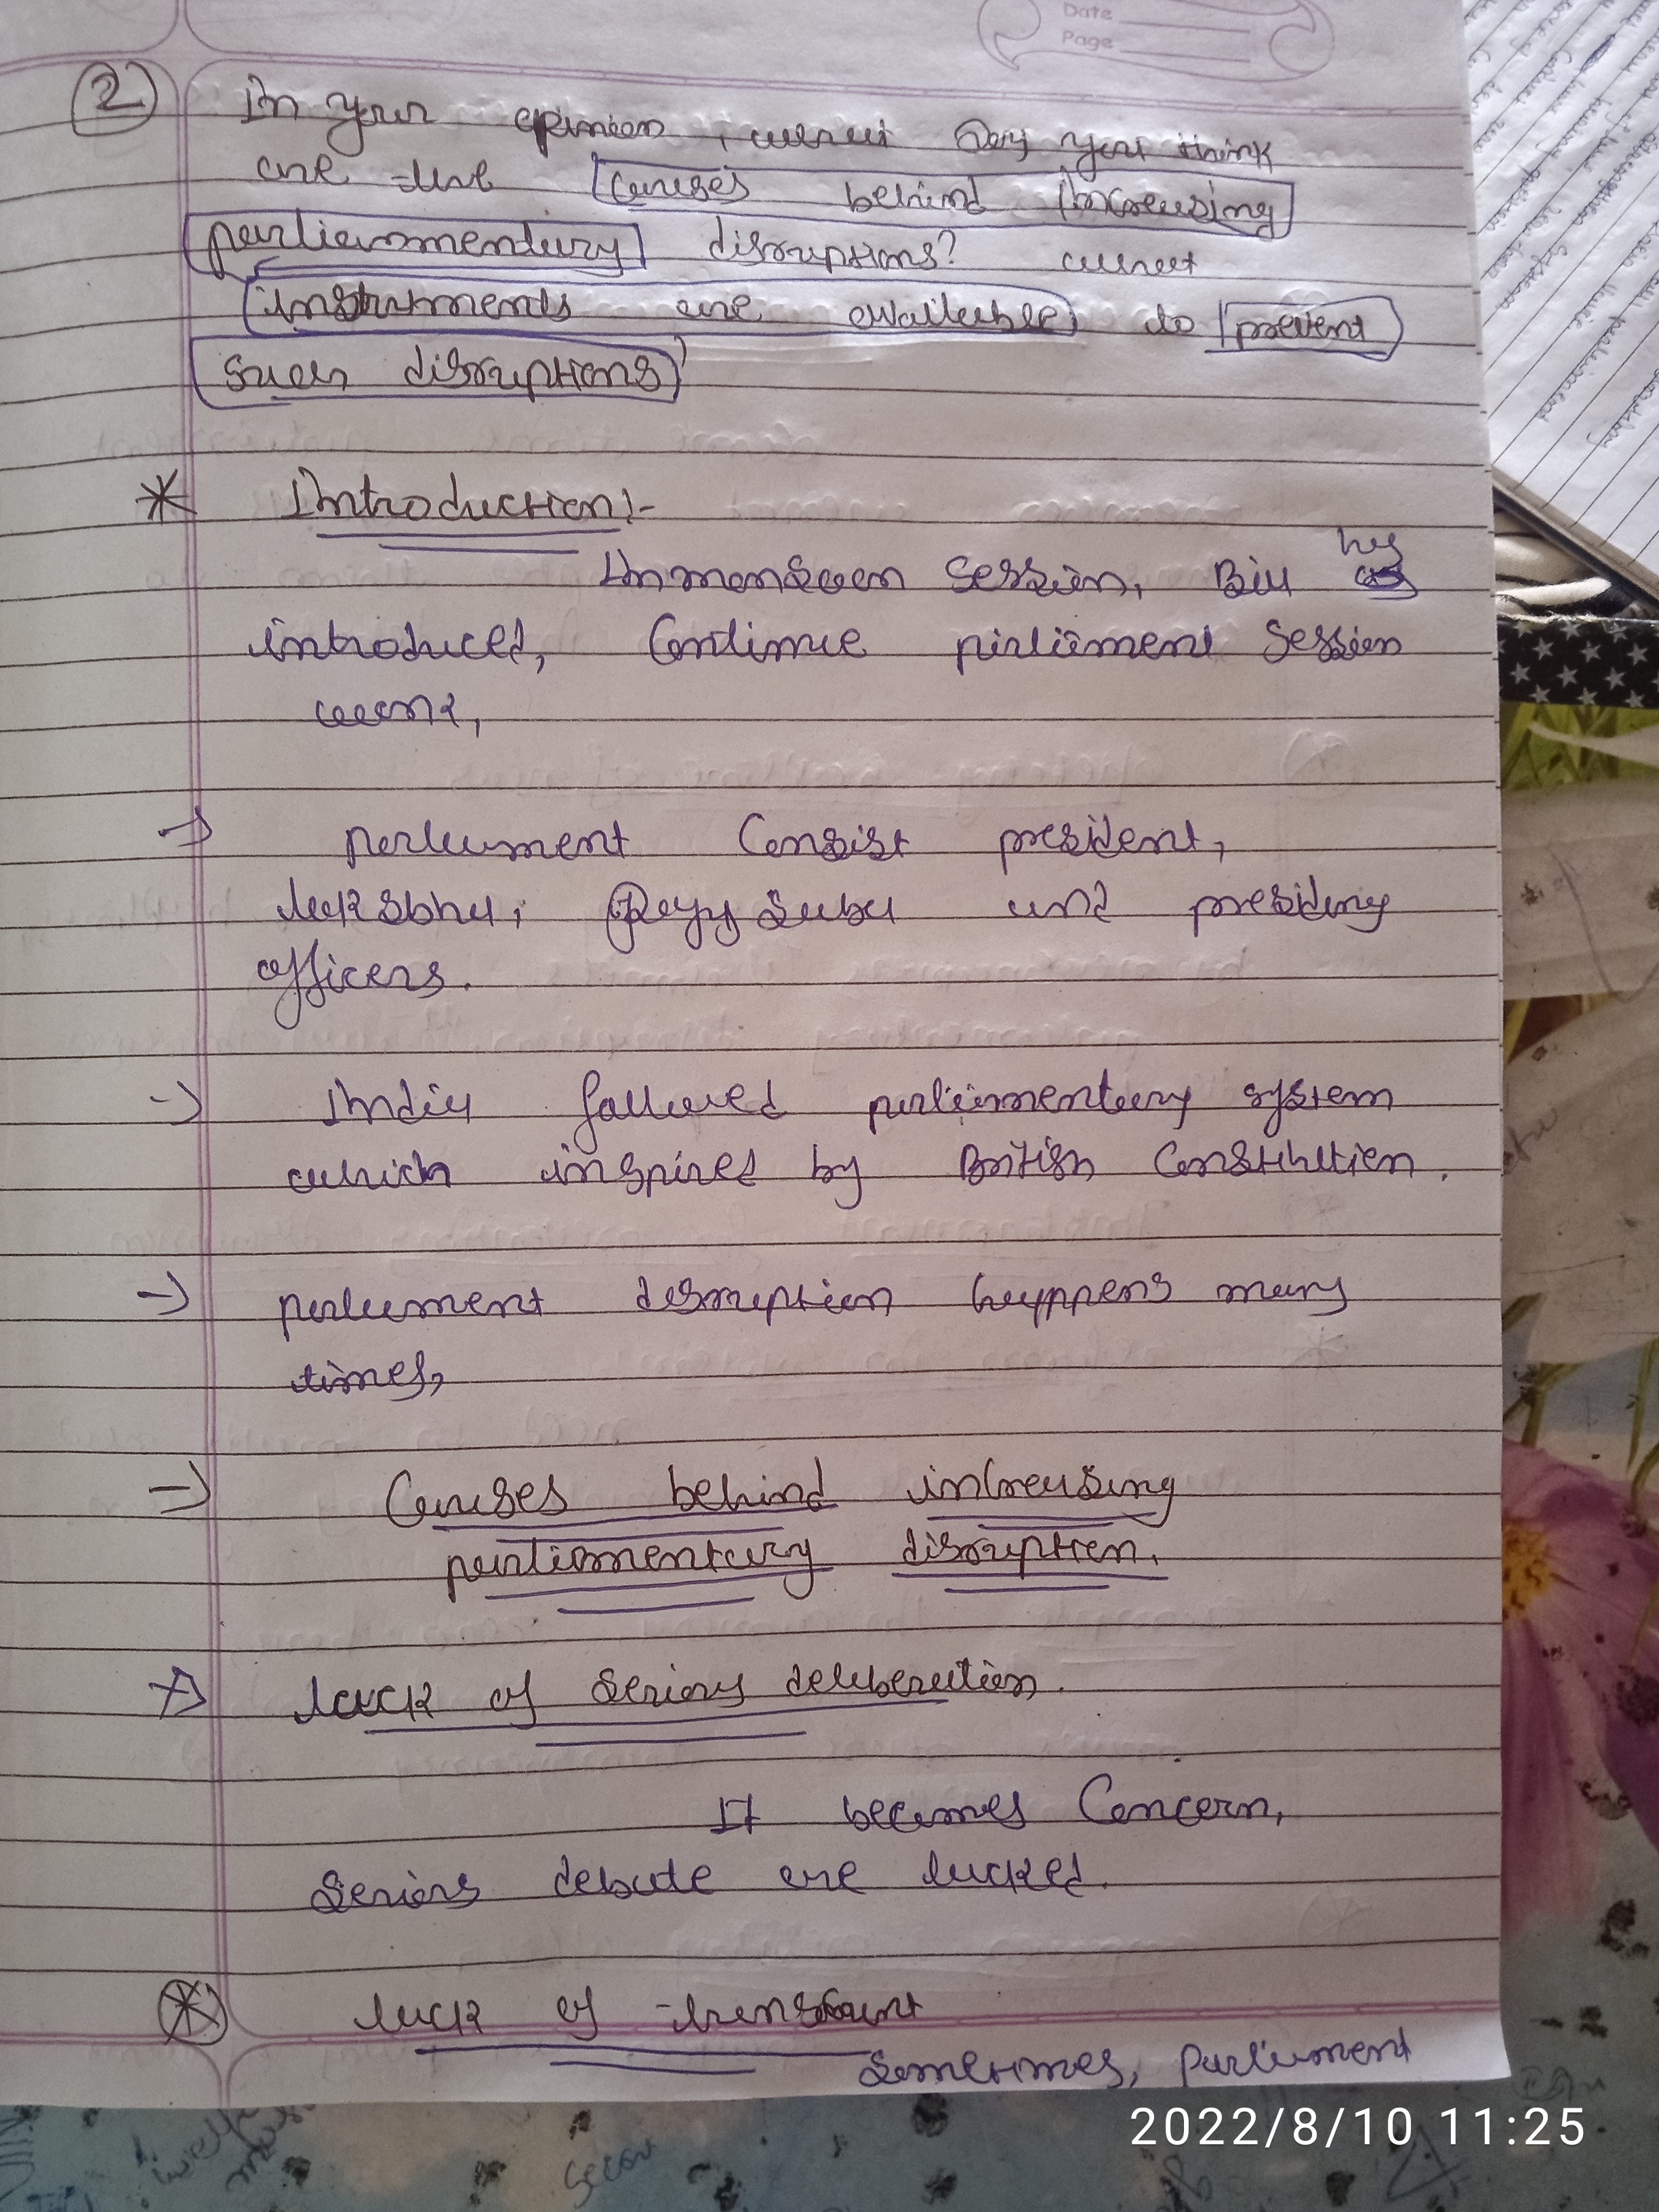 Date
Page
2
In your opinion, what Day you think
are the causes behind increasing
parliamentary disruptions? what
instruments are available to prevent
such disruptions
* Introduction:-
In monsoon session, Bill has
introduced, Continue parliament session
went,
→ parliament Consist president,
Loksbha, Rajysabha and presiding
officers.
→ India followed parliamentary system
which inspired by British Constitution.
→ parliament disruption happens many
times,
⇒ Causes behind increasing
parliamentary disruption.
→ lack of serious deliberation.
It becomes Concern,
serious debate are lacked.
* lack of
Sometimes, Parliament
2022/8/10 11:25